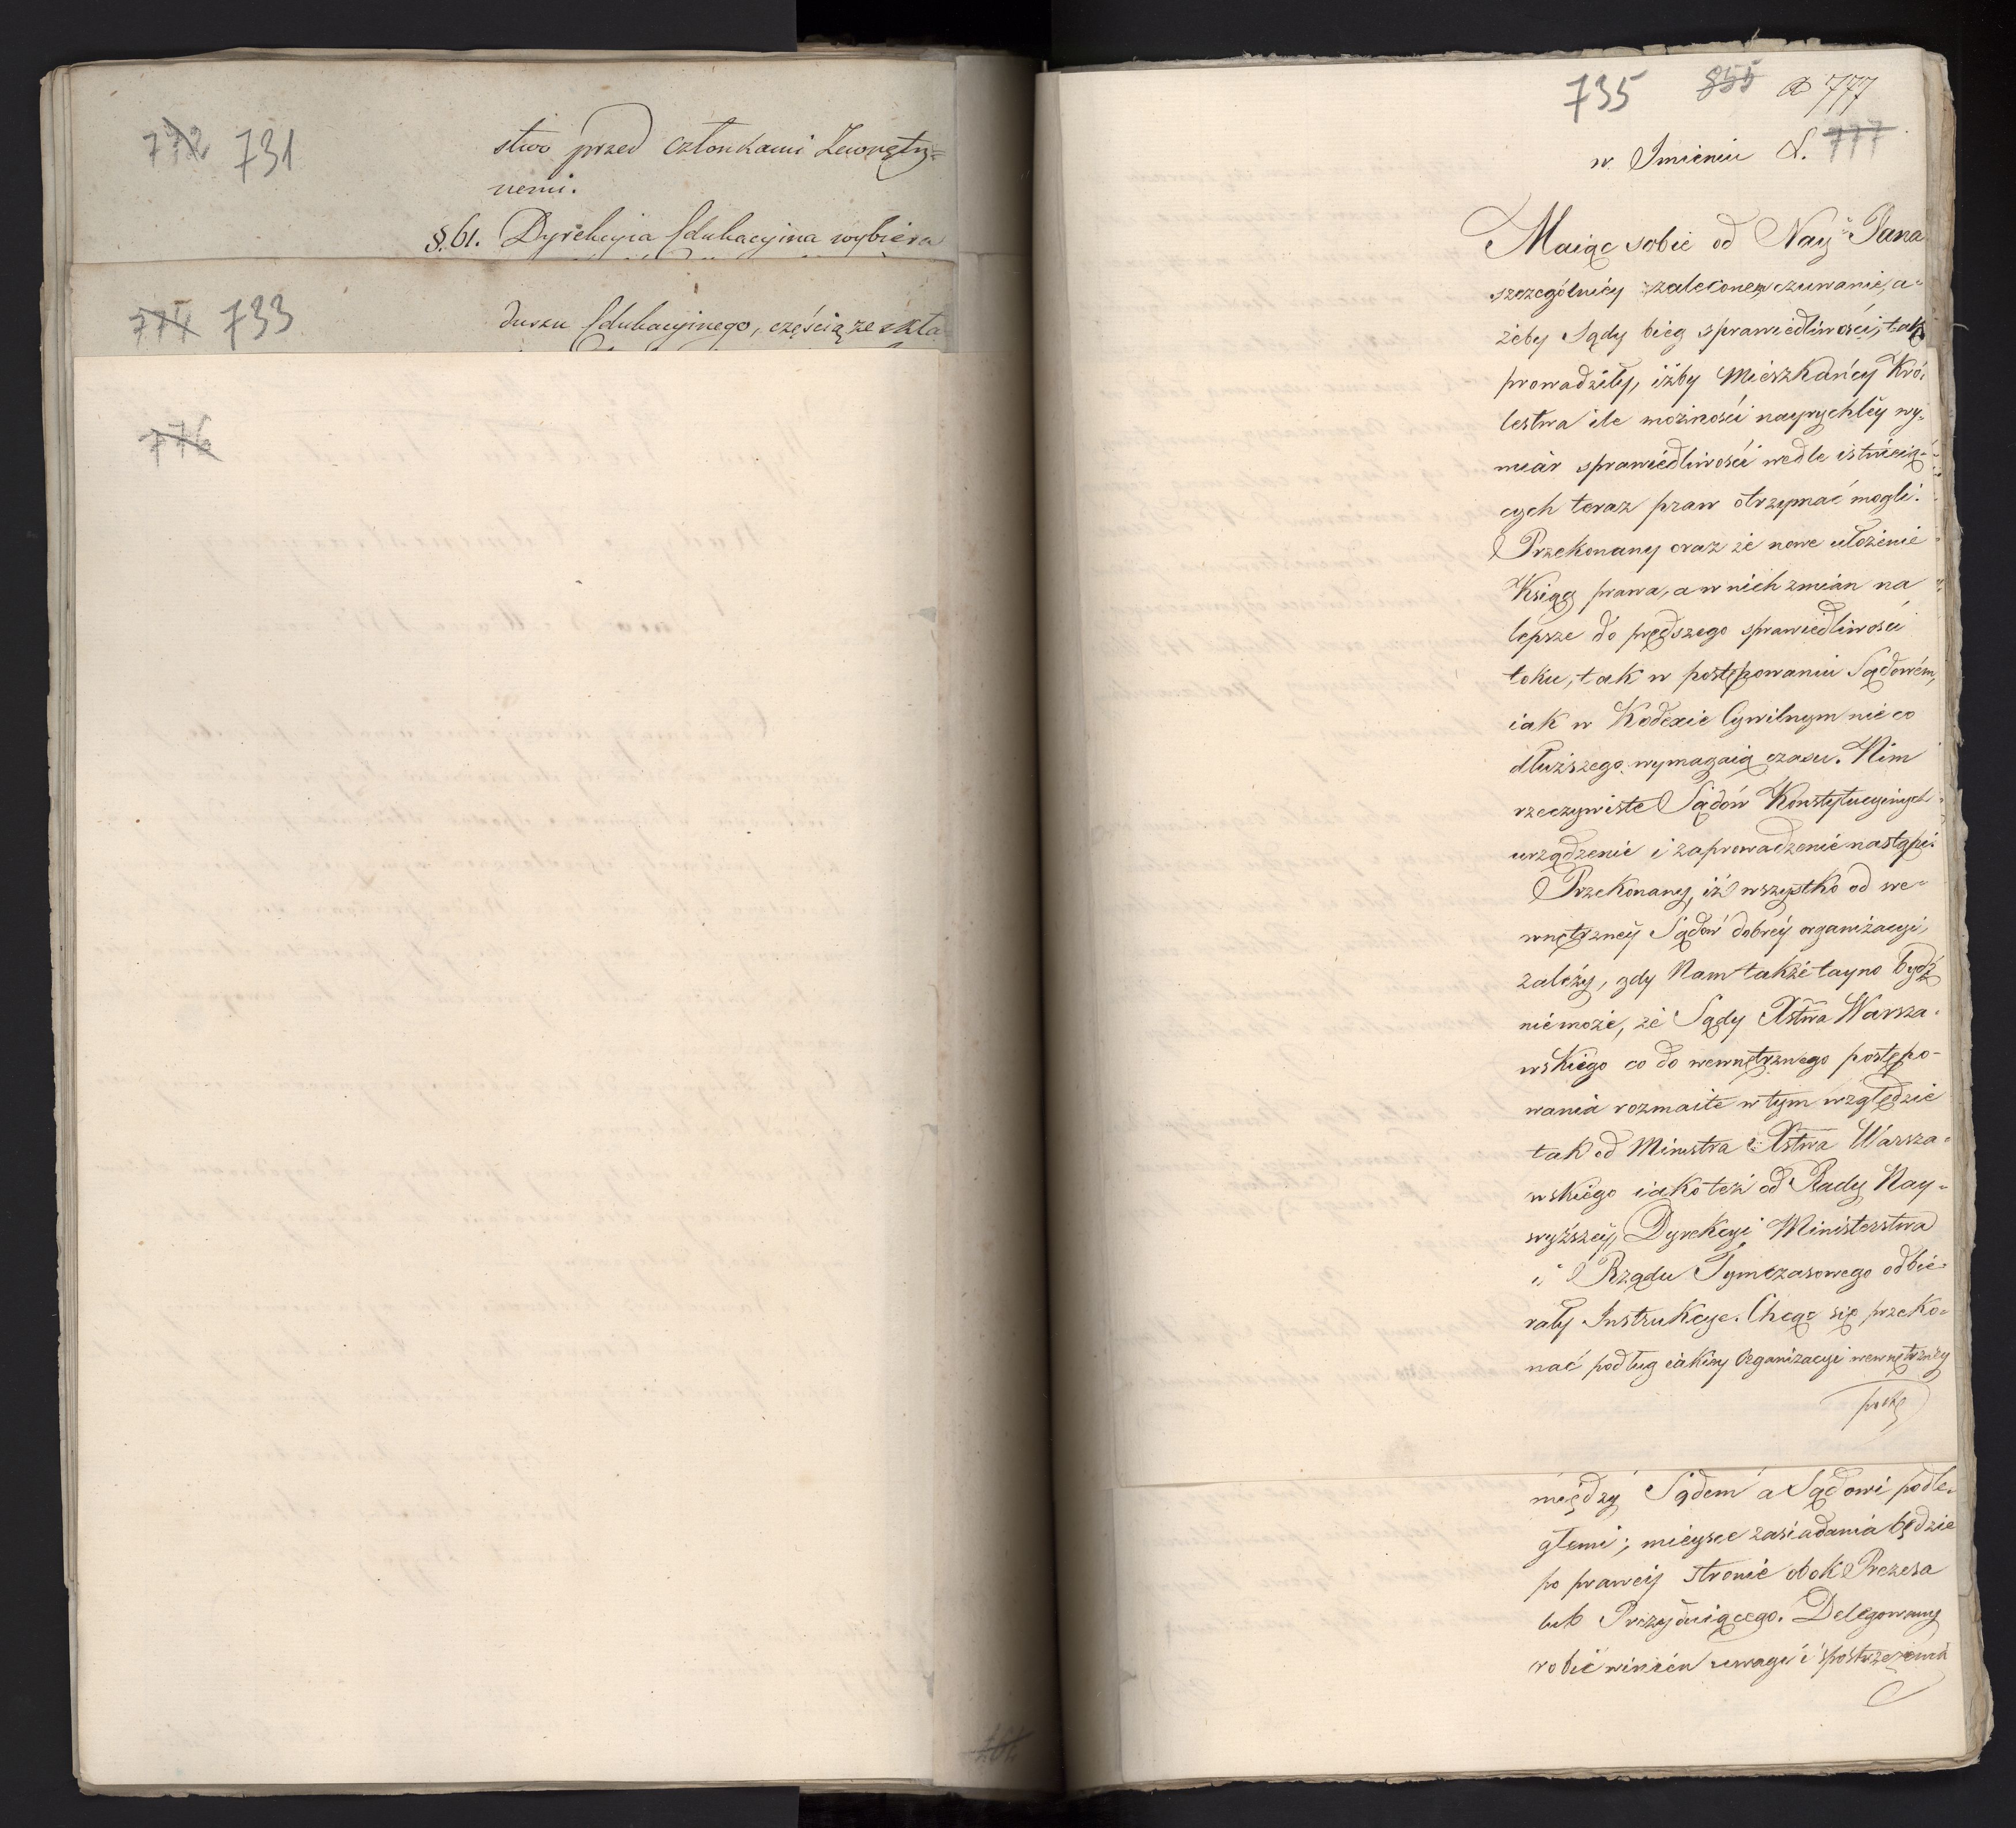 772 731
stwo przed członkami Zewnętrz=
nemi.
§. 61. Dyrekcyia Edukacyina wybiera
774 733
duszu Edukacyinego, częścią ze skła
776
735 855 777
w Imieniu 777
Maiąc sobie od Nay: Pana
szczególniey zalecone czuwanie, a=
żeby Sądy bieg sprawiedliwości, tak
prowadziły, iżby Mieszkańcy Kró=
lestwa ile możności nayrychley wy=
miar sprawiedliwości wedle istnieią=
cych teraz praw otrzymać mogli.
Przekonany oraz że nowe ułożenie
Ksiąg prawa, a w nich zmian na
lepsze do prędszego sprawiedliwości
toku, tak w postępowaniu Sądowém,
iak w Kodexie Cywilnym nieco
dłuższego wymagaią czasu. Nim
rzeczywiste Sądów Konstytucyinych
urządzenie i zaprowadzenie nastąpi.
Przekonany, iż wszystko od we=
wnętrzney Sądów dobrey organizacyi,
zależy, gdy Nam także tayno bydź
nie może, że Sądy Xstwa Warsza=
wskiego co do wewnętrznego postępo=
wania rozmaite w tym względzie
tak od Ministra Xstwa Warsza=
wskiego iako też od Rady Nay=
wyższey, Dyrekcyi Ministerstwa
i Rządu Tymczasowego odbie=
rały Instrukcye. Chcąc się przeko=
nać podług iakiey Organizacyi wewnętrzney
między Sądem a Sądowi podle=
głemi; mieysce zasiadania będzie
po prawey stronie obok Prezesa
lub Prezyduiącego. Delegowany
robić winien uwagi i spostrzeżenia